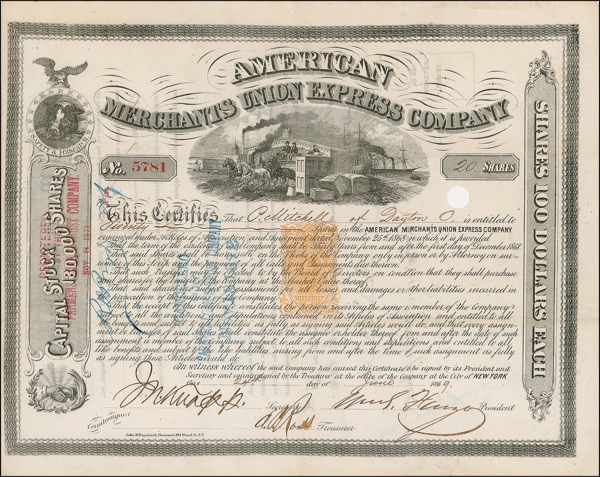 AMERICAN
MERCHANTS UNION EXPRESS COMPANY
No. 5781
20 SHARES
CAPITAL STOCK SHARES
SHARES 100 DOLLARS EACH
This Certifies That P. Mitchell of Dayton O. is entitled to
Twenty Shares in the AMERICAN MERCHANTS UNION EXPRESS COMPANY
organized under Articles of Association and Agreement dated November 25th 1868 in which it is provided
That the term of its existence shall be Thirty Years from and after the first day of December 1868.
That said Shares are transferable on the Books of the Company only in person or by Attorney on
render of this Certificate and payment of all calls and assessments due thereon
That such Transfer is to be decided on by the Board of Directors, on condition that they shall purchase
said shares for the benefit of the Company at the market value thereof
That said Shares are liable to assessments for all losses and damages or other liabilities incurred in
prosecution of the business of said Company.
That the receipt of this certificate constitutes the person receiving the same a member of the Company
to all the conditions and stipulations contained in its Articles of Association and entitled to all
benefits and subject to all its liabilities as fully as signing said Articles would do and that every assign-
ment or transfer of said shares shall constitute the assignee or holder thereof from and after the date of such
assignment a member of the Company subject to all such conditions and stipulations, and entitled to all
like benefits and subject to all like liabilities arising from and after the time of such assignment as fully
as signing these Articles would do
In witness whereof the said Company has caused this Certificate to be signed by its President and
Secretary and countersigned by the Treasurer at the office of the Company at the City of NEW YORK
this day of June 1869.
Secretary
President
Countersigned
Treasurer